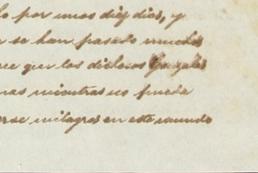 lo por unos diez dias, y
se han pasado muchos
que los dichosos Gonzales
mas mientras no pueda
milagros en este mundo